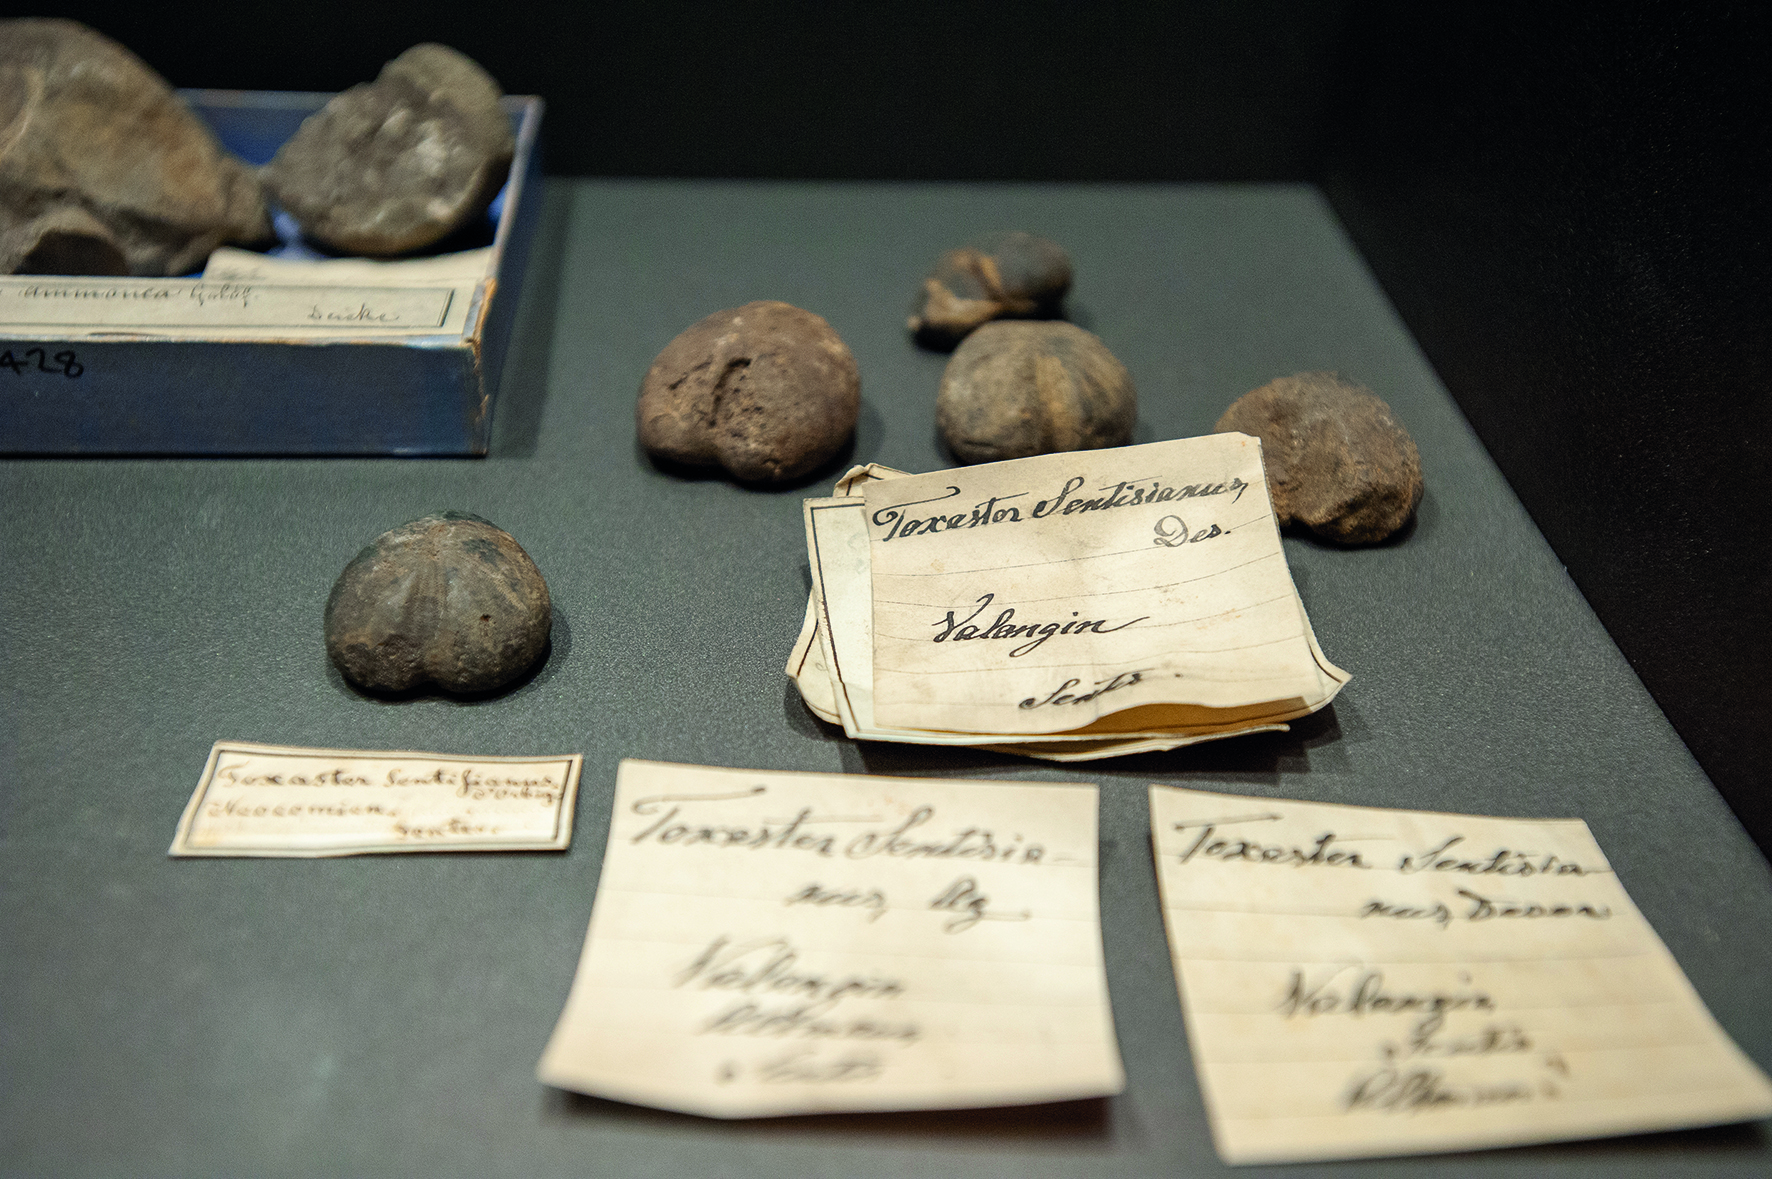 ammonea Goldf.
Deicke
428
Toxaster Sentisianus,
Des.
Valangin
Sentis.
Toxaster Sentisianus,
d'Orbig.
Neocomien.
Sentis.
Toxaster Sentisia-
nus, Ag.
Valangin
Sentis
Toxaster Sentisia-
nus, Desor
Valangin
Sentis